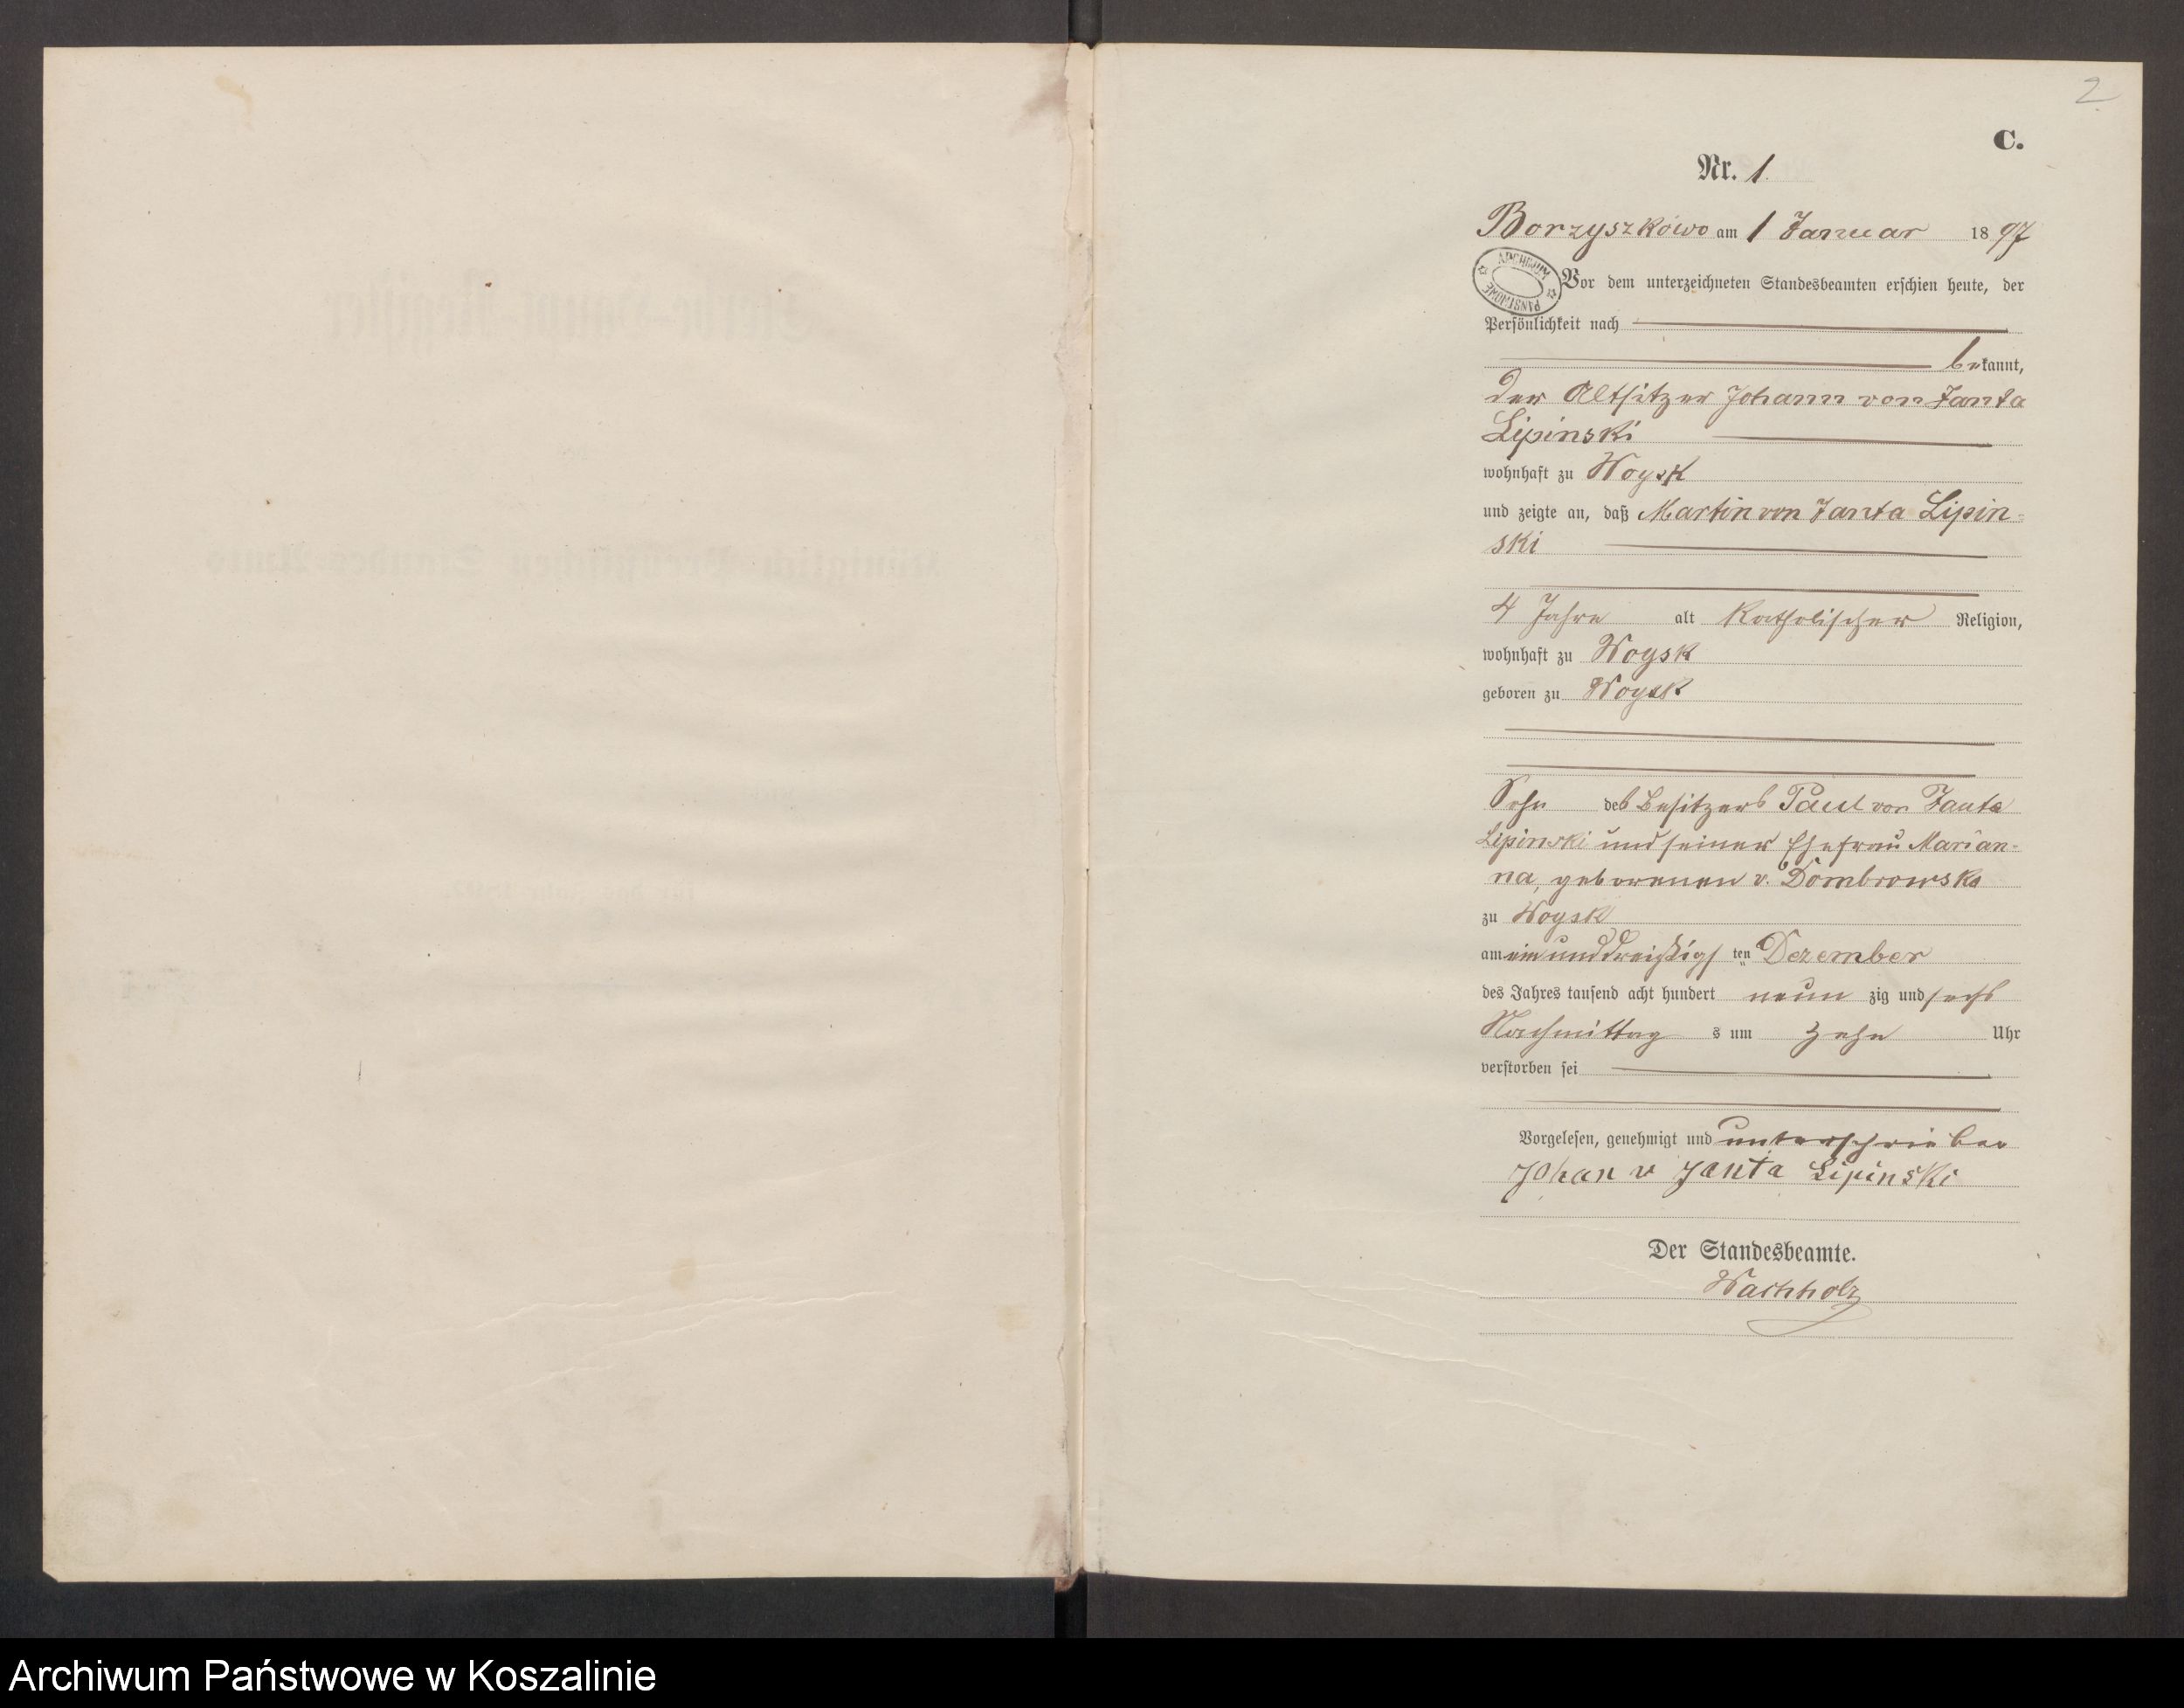 2
C.
Nr. 1.
Borzyszkowo am 1 Januar 1897
ARCHIWUM PAŃSTWOWE
Vor dem unterzeichneten Standesbeamten erschien heute, der
Persönlichkeit nach
bekannt,
der Altsitzer Johann von Janta
Lipinski
wohnhaft zu Woysk
und zeigte an, daß Martin von Janta Lipin-
ski
4 Jahre alt katholischer Religion,
wohnhaft zu Woysk
geboren zu Woysk
Sohn des Besitzers Paul von Janta
Lipinski und seiner Ehefrau Marian-
na, geborenen v. Dombrowska
zu Woysk
am einunddreißigsten Dezember
des Jahres tausend acht hundert neunzig und sechs
Nachmittags um zehn Uhr
verstorben sei
Vorgelesen, genehmigt und unterschrieben
Johan v Janta Lipinski
Der Standesbeamte.
Wachholz
Archiwum Państwowe w Koszalinie